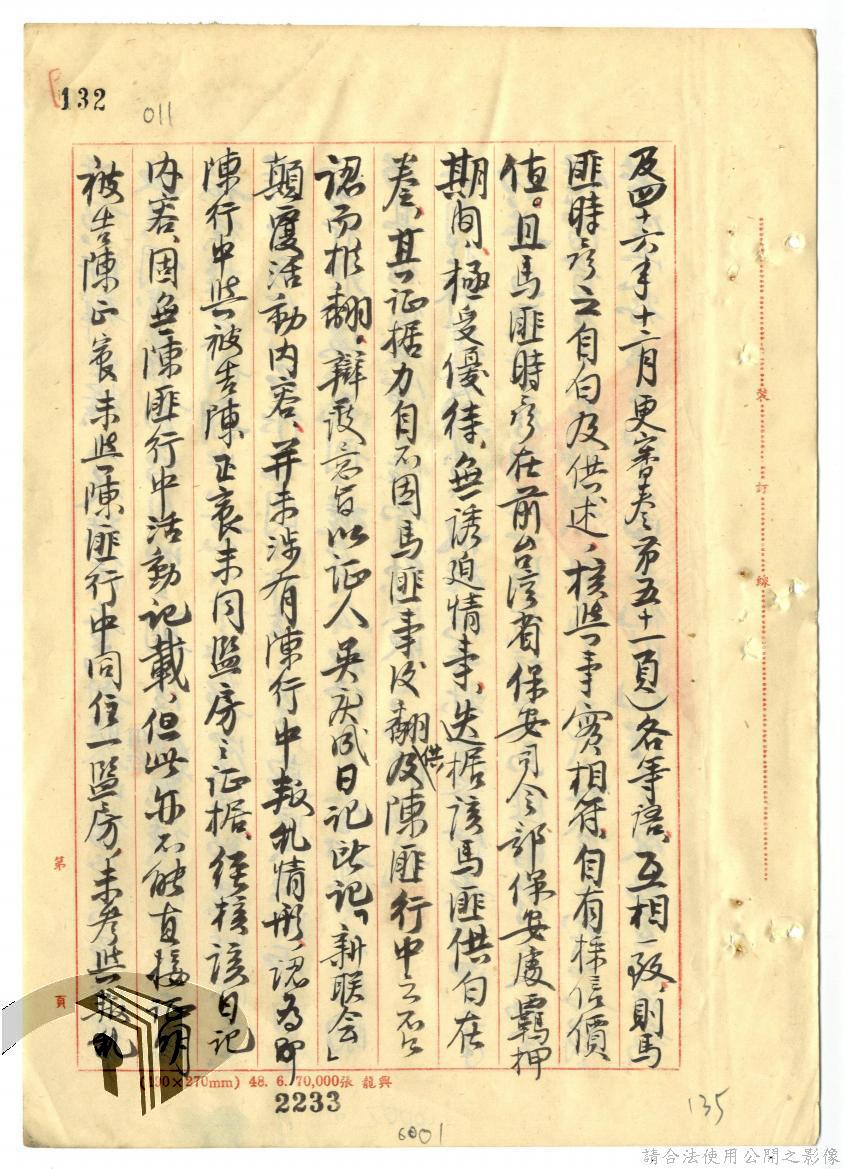 132
011
及四十六年十二月更審卷第五十一頁)各等語、互相一致、則馬
匪時彥之自白及供述、核與事實相符、自有採信價
值。且馬匪時彥在前台湾省保安司令部保安處羈押
期間、極受優待、無誘迫情事、迭據該馬匪供白在
卷、其証据力自不因馬匪事後翻供及陳匪行中之否
認而推翻。辯護意旨以证人吳庆风日记所记「新联会」
顛覆活動内容、并未涉有陳行中叛乱情形、認為即
陳行中與被告陳正宸未同監房之证据、經核該日记
内容、固無陳匪行中活動记載、但此亦不能直接证明
被告陳正宸未與陳匪行中同住一監房、未參與叛乱
裝
訂
線
第
頁
(190×270mm) 48. 6. 70,000張 龍興
2233
6001
135
請合法使用公開之影像